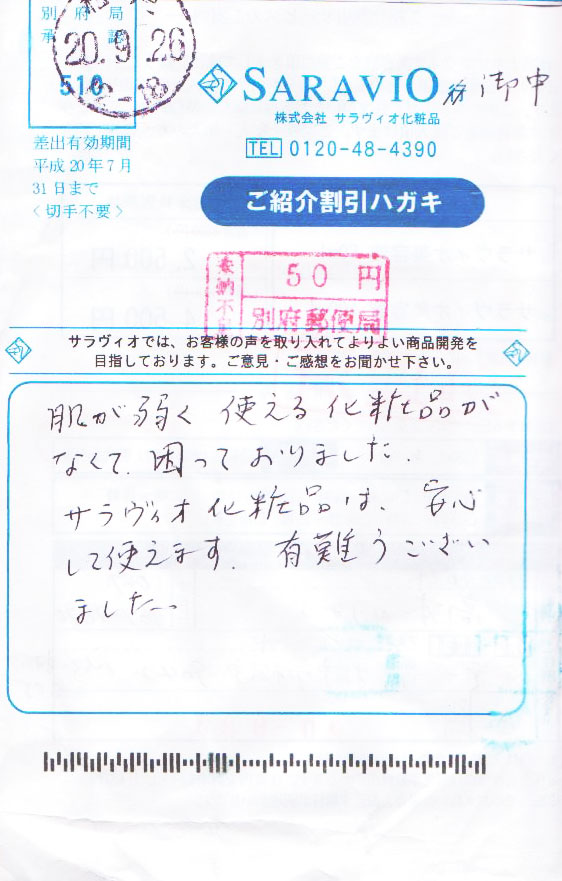 別府局
承認
510
20.9.26
SARAVIO 行 御中
株式会社 サラヴィオ化粧品
TEL 0120-48-4390
差出有効期間
平成20年7月
31日まで
<切手不要>
ご紹介割引ハガキ
50円
別府郵便局
サラヴィオでは、お客様の声を取り入れてよりよい商品開発を
目指しております。ご意見・ご感想をお聞かせ下さい。
肌が弱く 使える 化粧品が
なくて、困って おりました.
サラヴィオ 化粧品は、安心
して使えます. 有難うござい
ました。